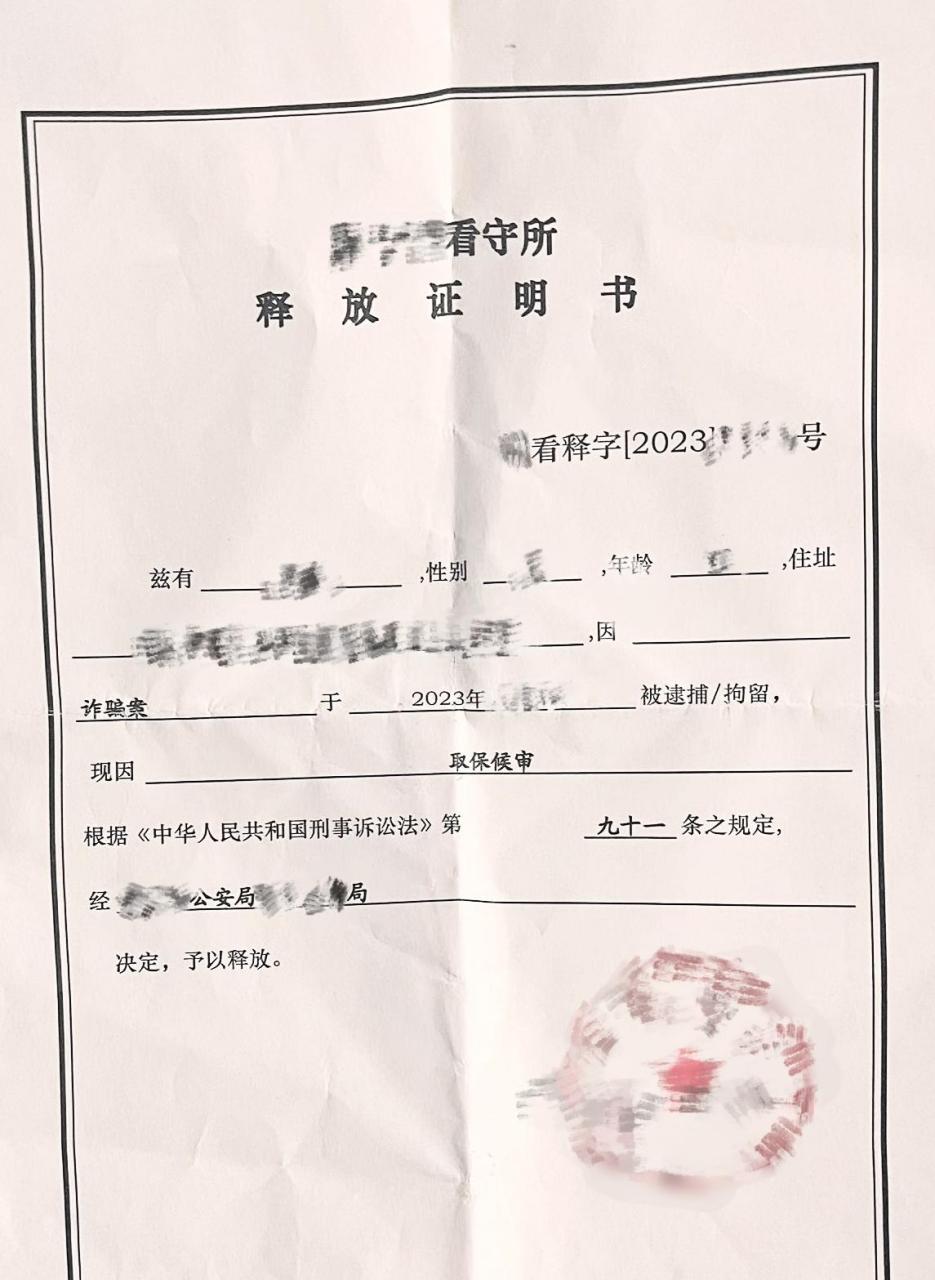 看守所
释放证明书
看释字[2023] 号
兹有 ,性别 ,年龄 ,住址
,因
诈骗案 于 2023年 被逮捕/拘留，
现因 取保候审
根据《中华人民共和国刑事诉讼法》第 九十一 条之规定,
经 公安局 局
决定，予以释放。